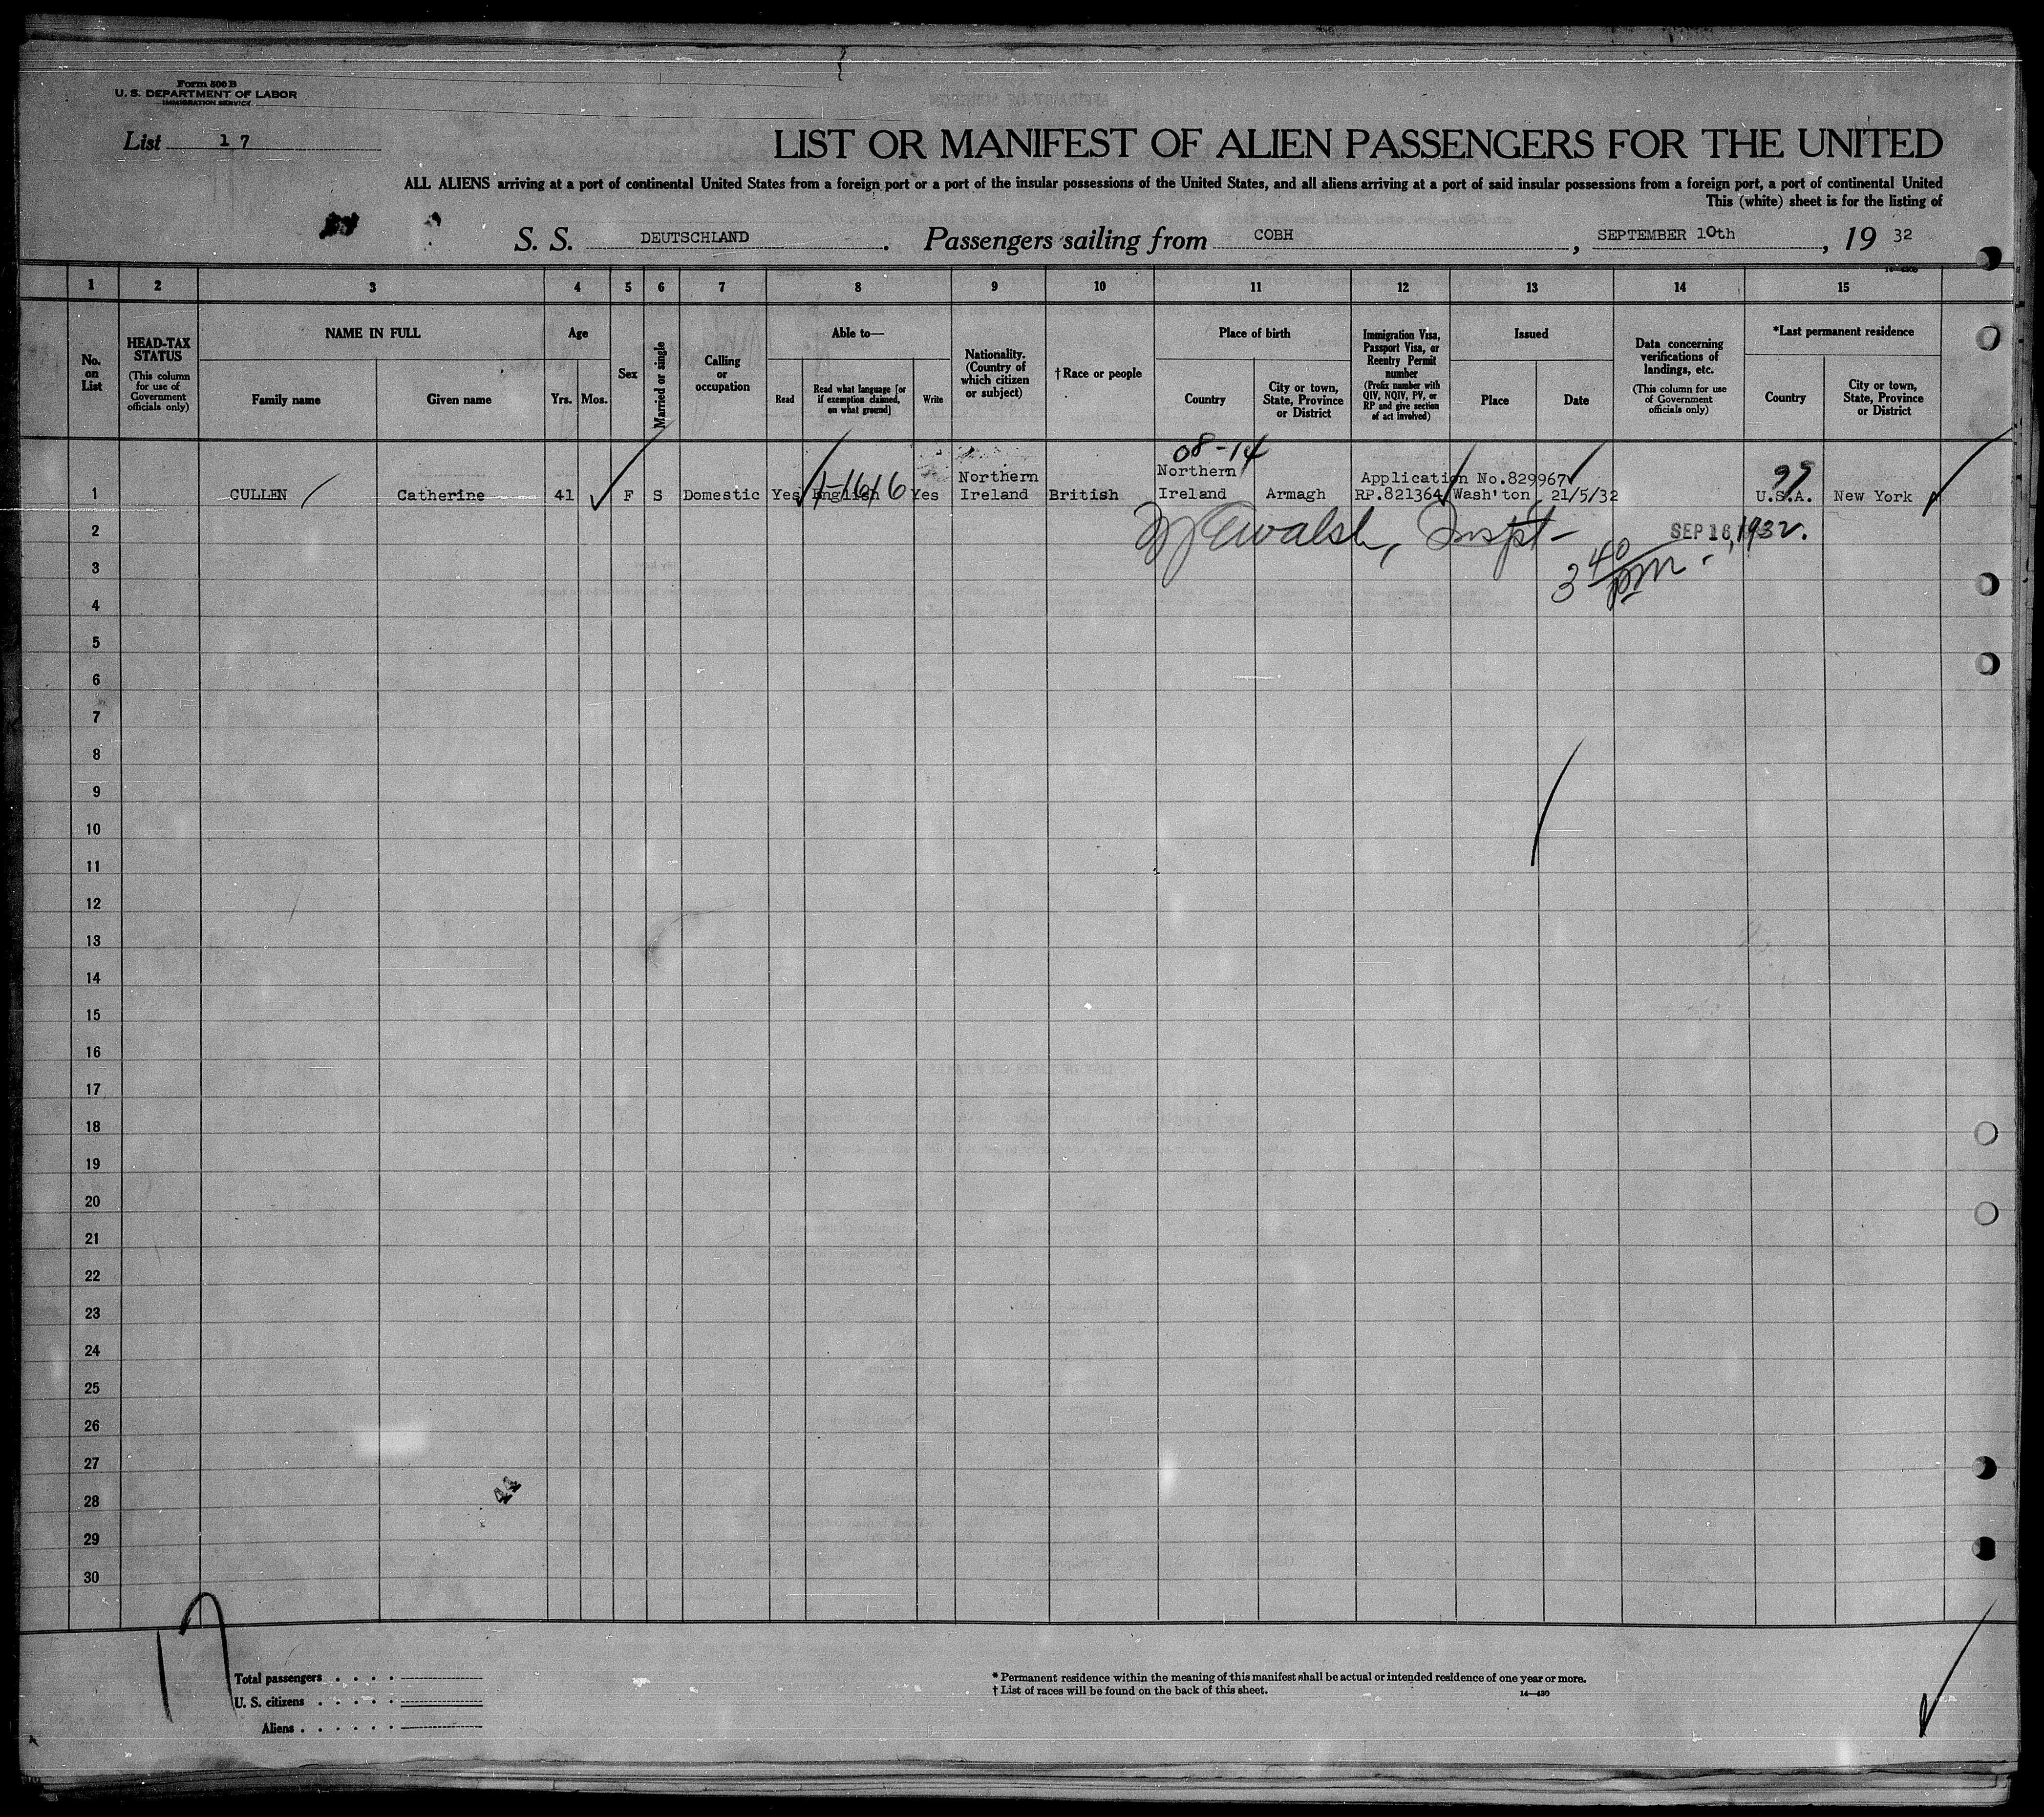 Form 500 B
U. S. DEPARTMENT OF LABOR
IMMIGRATION SERVICE
List 17
LIST OR MANIFEST OF ALIEN PASSENGERS FOR THE UNITED
ALL ALIENS arriving at a port of continental United States from a foreign port or a port of the insular possessions of the United States, and all aliens arriving at a port of said insular possessions from a foreign port, a port of continental United
This (white) sheet is for the listing of
S. S. DEUTSCHLAND. Passengers sailing from COBH, SEPTEMBER 10th, 19 32
1 2 3 4 5 6 7 8 9 10 11 12 13 14 15
No. on List
HEAD-TAX STATUS
(This column for use of Government officials only)
NAME IN FULL
Family name
Given name
Age
Yrs. Mos.
Sex
Married or single
Calling or occupation
Able to—
Read
Read what language [or if exemption claimed, on what ground]
Write
Nationality. (Country of which citizen or subject)
†Race or people
Place of birth
Country
City or town, State, Province or District
Immigration Visa, Passport Visa, or Reentry Permit number
(Prefix number with QIV, NQIV, PV, or RP and give section of act involved)
Issued
Place
Date
Data concerning verifications of landings, etc.
(This column for use of Government officials only)
*Last permanent residence
Country
City or town, State, Province or District
08-14
1 CULLEN Catherine 41 F S Domestic Yes English Yes Northern Ireland British Northern Ireland Armagh Application No.829967 RP.821364 Wash'ton 21/5/32 U.S.A. New York
1-1616
99
2 Walsh, Inspt- SEP 16, 1932.
3 3 40 pm.
4
5
6
7
8
9
10
11
12
13
14
15
16
17
18
19
20
21
22
23
24
25
26
27
28
29
30
44
17
Total passengers . . . .
U. S. citizens . . . . .
Aliens . . . . . .
* Permanent residence within the meaning of this manifest shall be actual or intended residence of one year or more.
† List of races will be found on the back of this sheet.
14—430